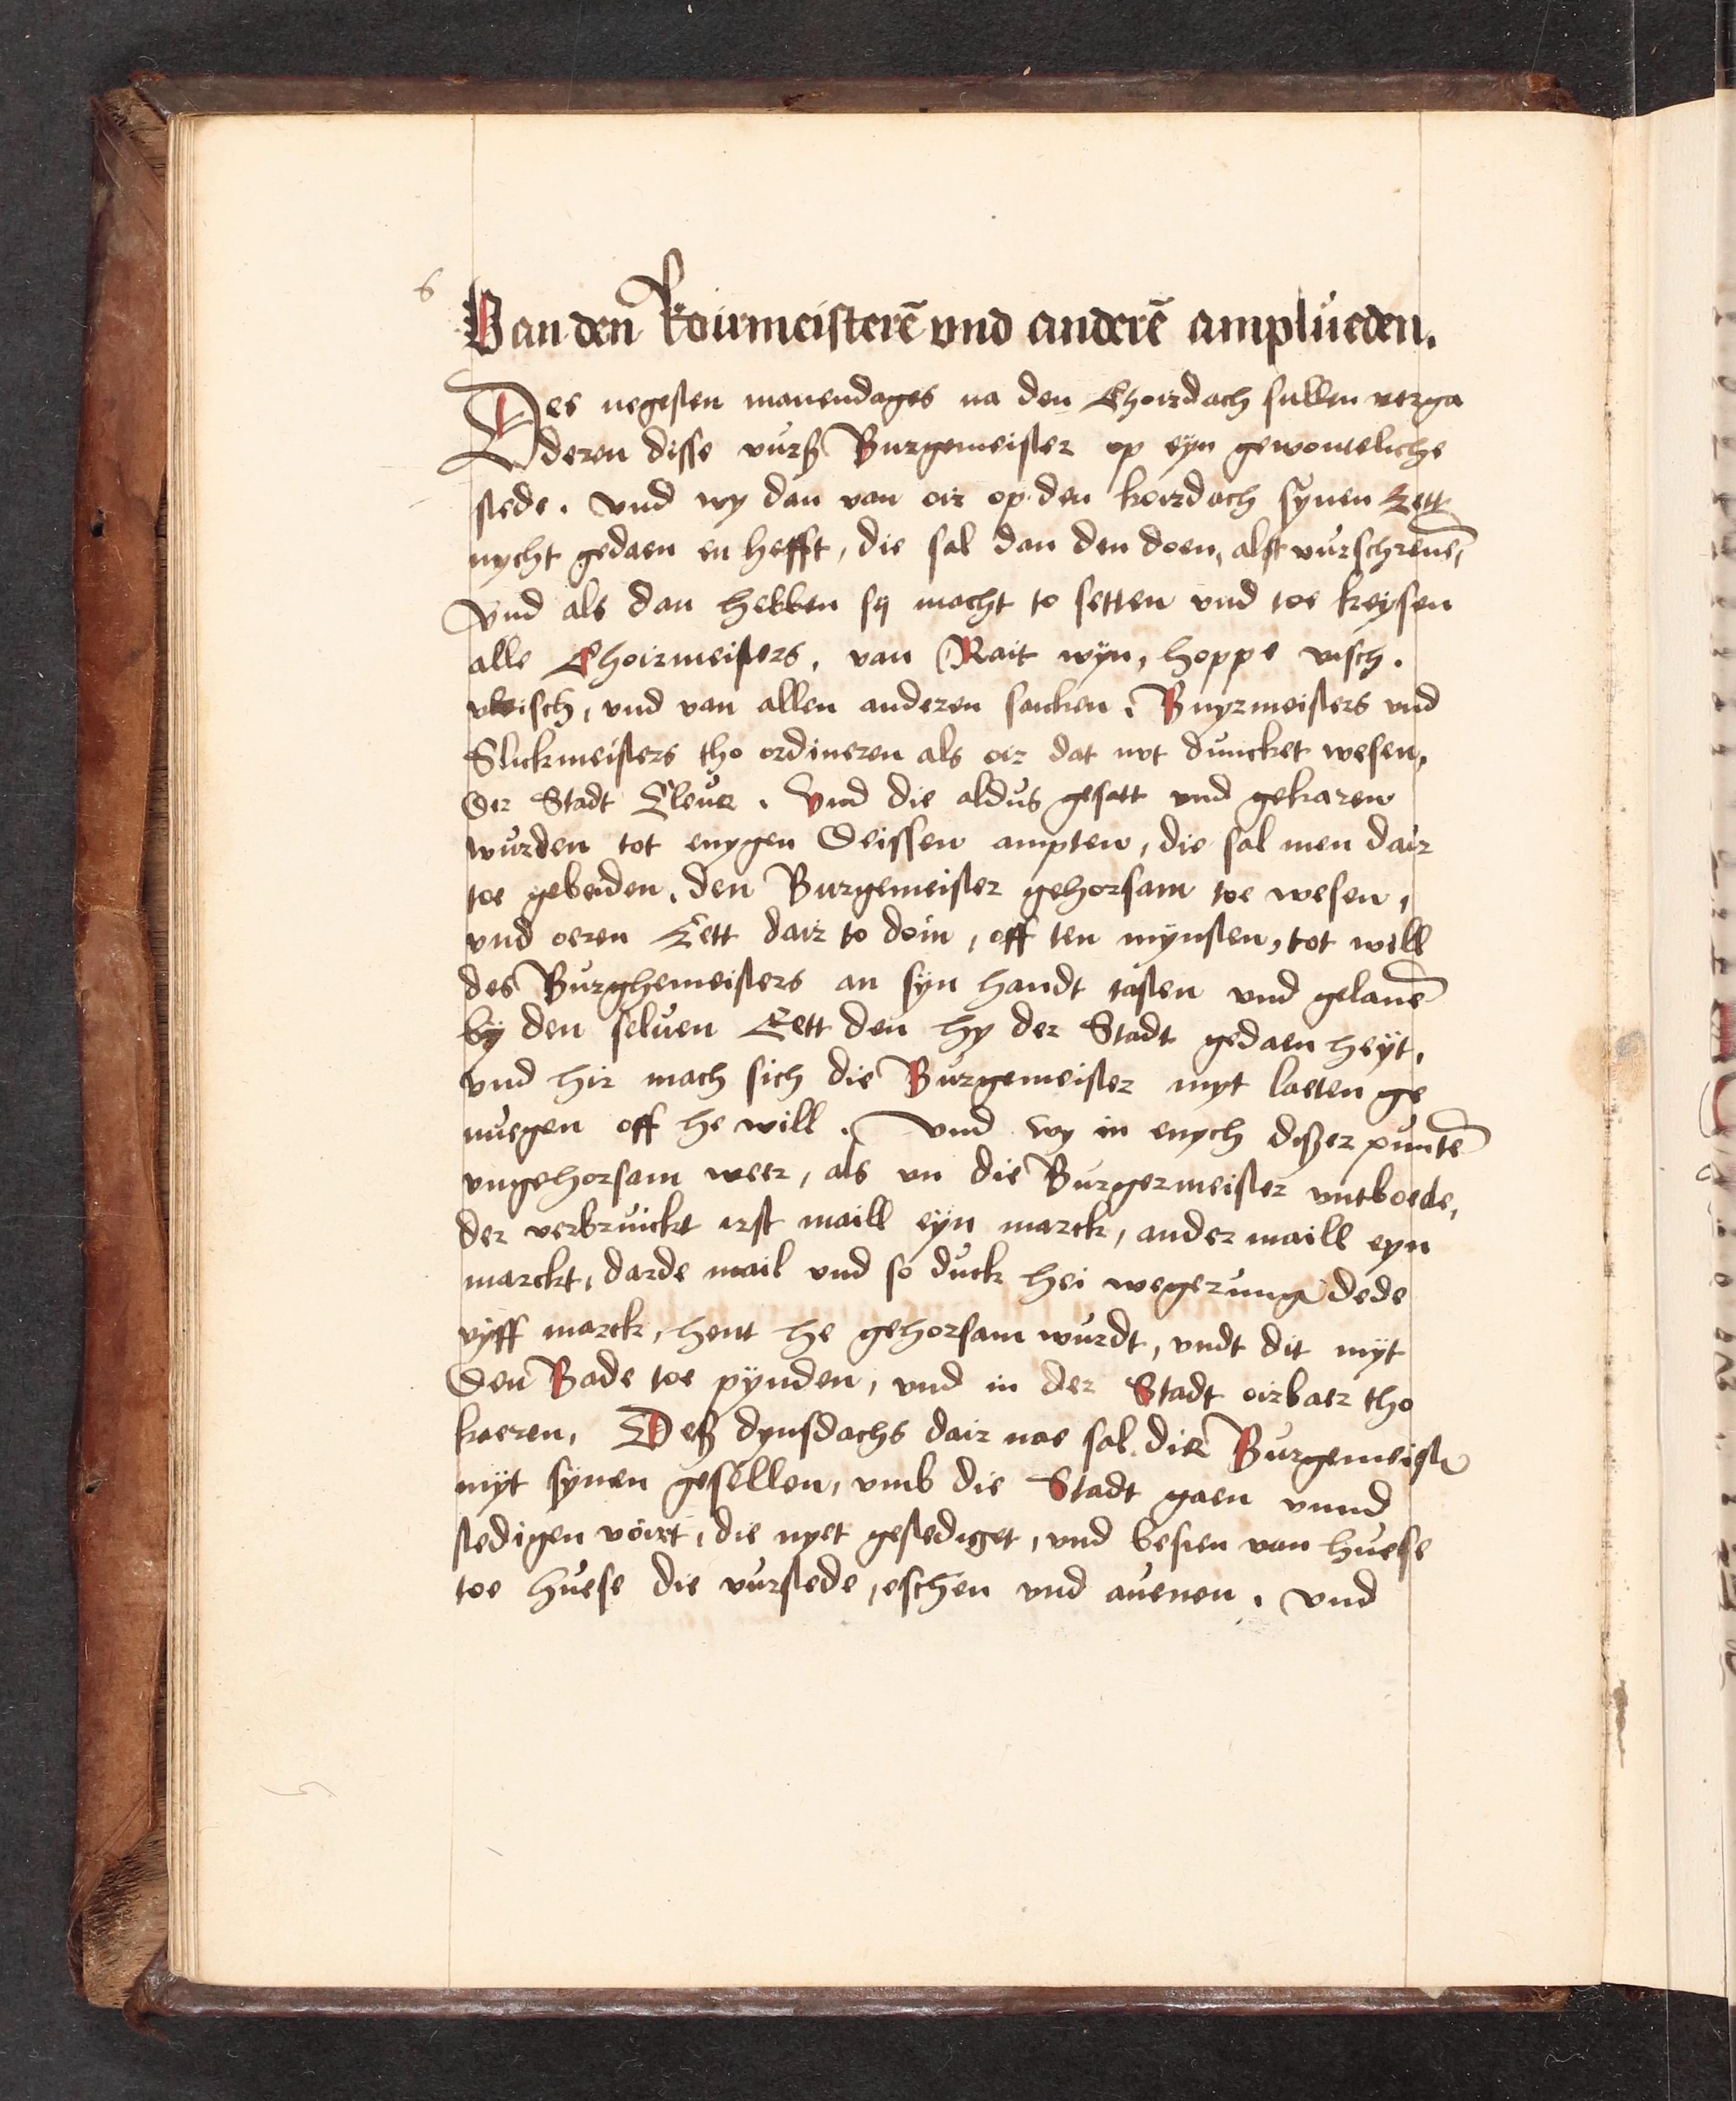 6
Van den Koirmeisterē vnd anderē amplüeden.
Des negesten manendages na den Choirdach sullen verga
deren disse vurß Burgemeister op eyn gewonteliche
stede. Vnd wy dan van oir op den koirdach synen Eett
nycht gedaen en hefft, die sal dan den doen, alst vurschreuē,
Vnd als dan hebben sij macht to setten vnd toe keysen
alle Choirmeisters, van Rait wyn, hoppe visch.
vleisch, vnd van allen anderen saicken, Buyrmeisters vnd
Slickmeisters tho ordineren als oir dat nvt duncket wesen,
Der Stadt Cleue. Vnd die aldus gesatt vnd gekaren
wurden tot enygen Deissen ampten, die sal men dair
toe gebeiden, den Burgemeister gehorsam toe wesen,
vnd oeren Eett dair to doin, off ten mynsten, tot will
des Burghemeisters an syn handt tasten vnd gelauē
by den seluen Eett den hy der Stadt gedaen heyt,
vnd hir mach sich die Burgemeister myt laeten ge
nuegen off he will. Vnd wy in enych dißer puntē
vngehorsam weer, als vn die Burgermeister vntboede,
der verbruickt irst maill eyn marck, ander maill eyn
marckt, darde mail vnd so duck hei wegerung dede
vyff marck, hent he gehorsam wurdt, vndt dit myt
Den Bade toe pynden, vnd in der Stadt oirbaer tho
kaeren, Deß dynsdachs dair nae sal die Burgemeister
myt synen gesellen, vmb die Stadt gaen vnnd
stedigen voirt, die nyet gestediget, vnd besien van huese
toe huese die vurstede, eschen vnd auenen. Vnd